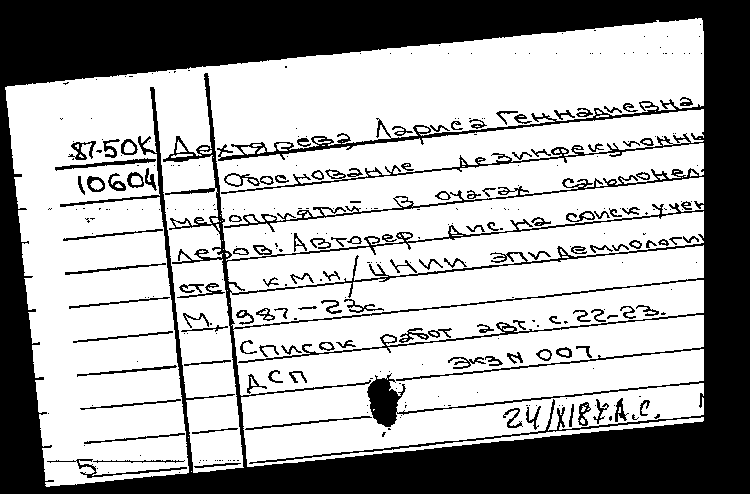 87-50К Дехтярева, Лариса Геннадиевна.
10604 Обоснование дезинфекционны
мероприятий в очагах сальмонел-
лезов: Автореф. дис. на соиск. учен
степ. к.м.н. / ЦНИИ эпидемиологии
М., 1987. – 23с.
Список работ авт.: с. 22-23.
ДСП Экз N 007.
24/XI87. А.С.
5